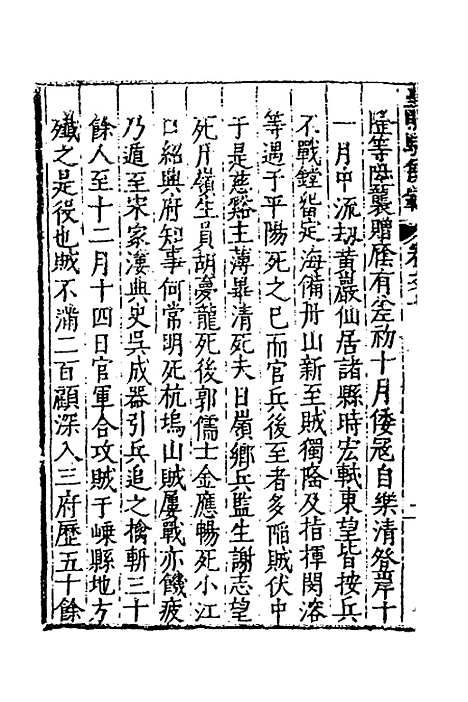 陞等陞襲贈廕有差初十月倭寇自樂清登岸十
一月中流刼黃巖仙居諸縣時宏軾東望皆按兵
不戰鏜留定海備舟山新至賊獨裔及指揮閔溶
等遇于平陽死之已而官兵後至者多陷賊伏中
于是慈谿主薄畢清死夫日嶺鄉兵監生謝志望
死丹嶺生員胡夢龍死後郭儒士金應暢死小江
口紹興府知事何常明死杭塢山賊屢戰亦饑疲
乃遁至宋家漊典史吳成器引兵追之擒斬三十
餘人至十二月十四日官軍合攻賊于嵊縣地方
殲之是役也賊不滿二百顧深入三府歷五十餘